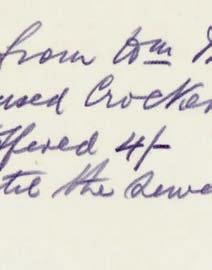 from Wm
used Crocker
ffered 4/-
the sewe